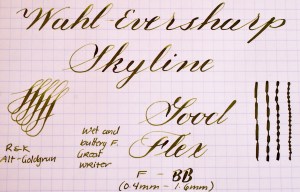 Wahl-Eversharp
Skyline
Good
Flex
F - BB
(0.4mm - 1.6mm)
Wet and
buttery F.
Great
writer
R&K
Alt-Goldgrun